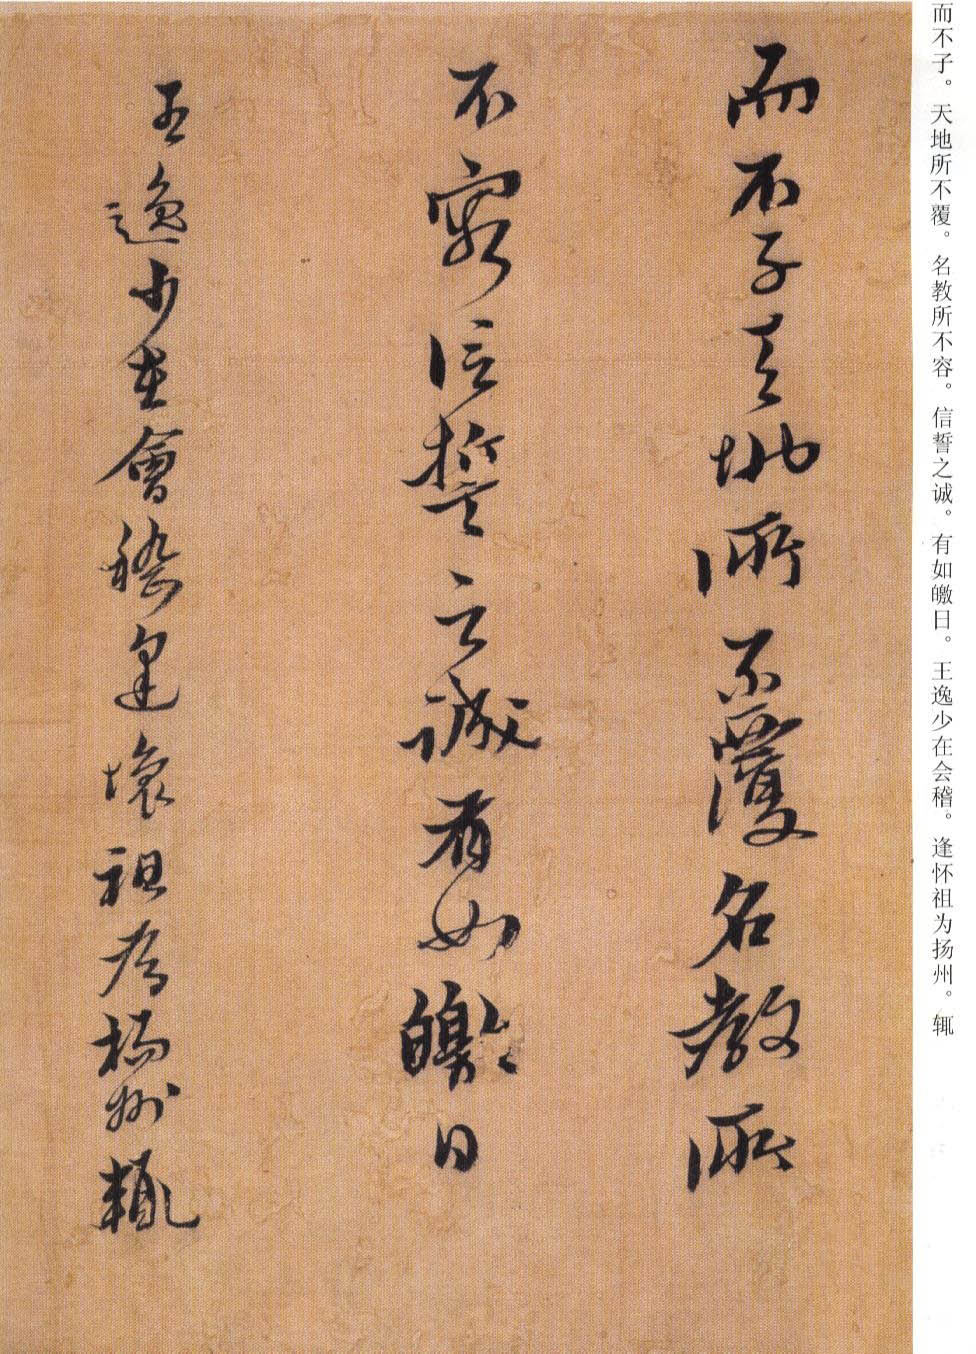 而不子。天地所不覆。名教所不容。信誓之诚。有如皦日。王逸少在会稽。逢怀祖为扬州。辄
而不子天地所不覆名教所
不容信誓之诚有如皦日
王逸少在會稽逢懷祖為揚州輒